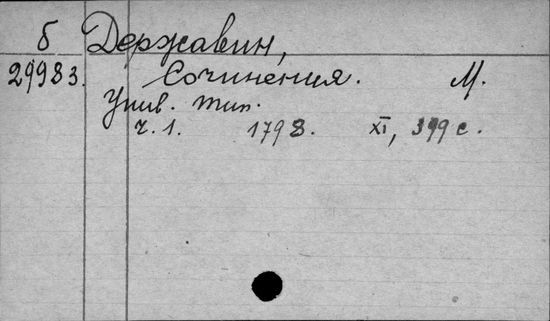 б Державин,
29983. Сочинения. М.
Унив. тип.
ч. 1. 1798. XI, 399 с.